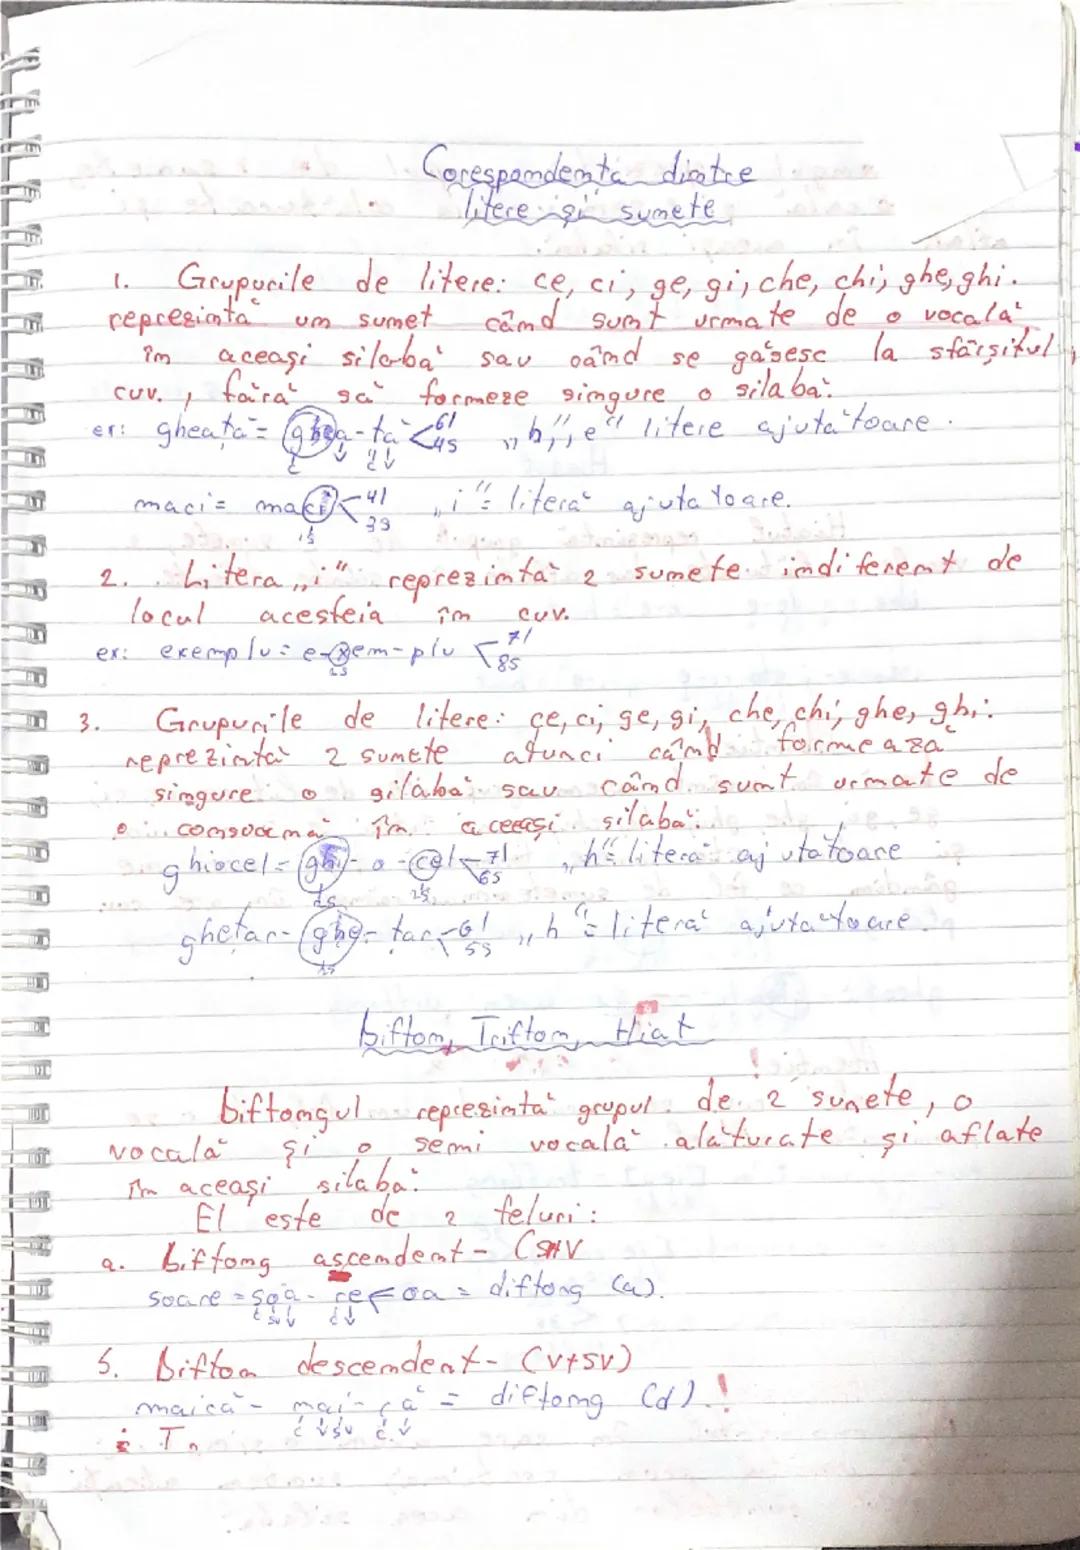 Corespondența dintre
litere și sunete
1. Grupurile de litere: ce, ci, ge, gi, che, chi, ghe, ghi.
reprezintă un sunet când sunt urmate de o vocală
în aceași silabă sau când se găsesc la sfârșitul
cuv., fără să formeze singure o silabă.
ex: gheață = ghea-ță <6l 4s „h", „e" litere ajutătoare.
c v c v
maci = maci <4l 3s „i" = literă ajutătoare.
1s
2. Litera „i" reprezintă 2 sunete indiferent de
locul acesteia în cuv.
ex: exemplu = e-xem-plu <7l 8s
2s
3. Grupurile de litere: ce, ci, ge, gi, che, chi, ghe, ghi.
reprezintă 2 sunete atunci când formează
singure o silabă sau când sunt urmate de
o consoană în aceeași silabă.
ghiocel = ghi-o-cel <7l 6s „h" = literă ajutătoare
2s 2s
ghetar - ghe-tar <6l 5s „h" = literă ajutătoare.
2s
Difton, Trifton, Hiat
Diftongul reprezintă grupul de 2 sunete, o
vocală și o semi vocală alăturate și aflate
în aceași silabă.
El este de 2 feluri:
a. Diftong ascendent - (SV
soare = soa-re < oa = diftong (a).
c sv v c v
b. Difton descendent - (V+SV)
maică - mai-că = diftong (d)!
c v sv c v